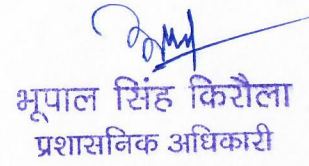 भूपाल सिंह किरौला
प्रशासनिक अधिकारी